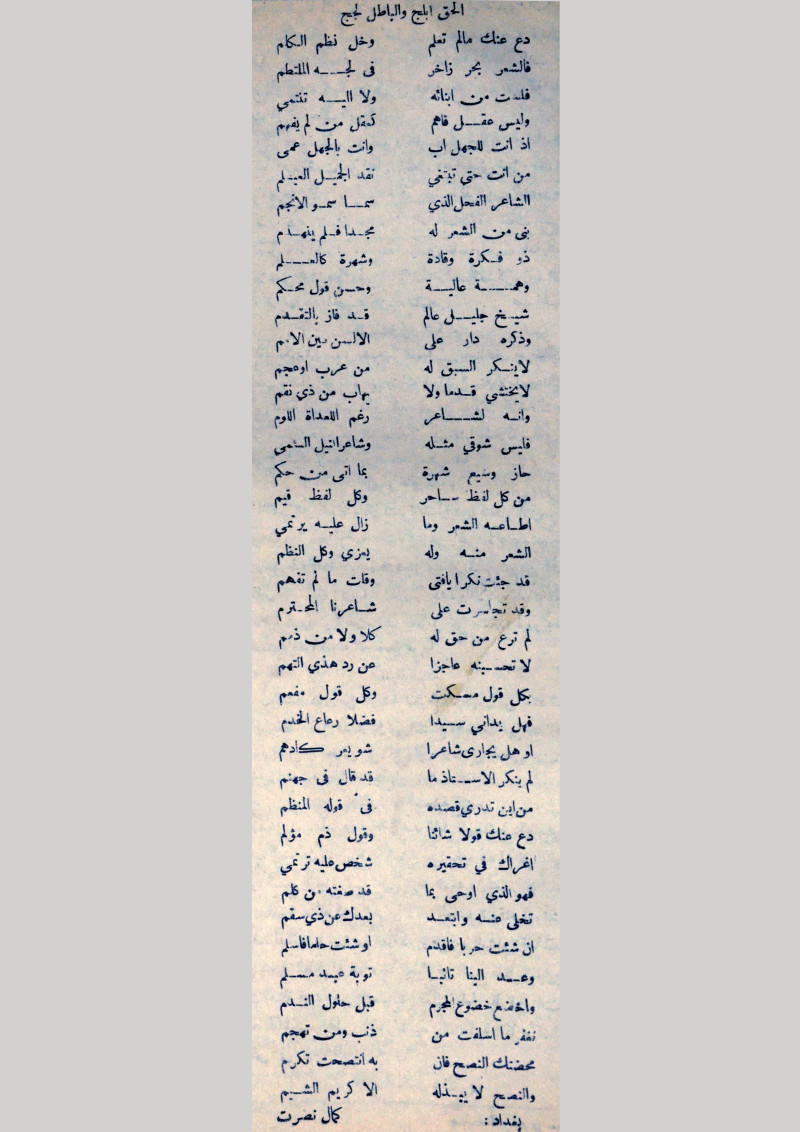 الحق ابلج والباطل لجيج
دع عنك مالم تعلم وخل نظم الكلم
فالشعر بحر زاخر فى لجه الملتطم
فلست من ابنائه ولا اليه تنتمي
وليس عقل فاهم كعقل من لم يفهم
اذ انت للجهل اب وانت بالجهل عمى
من انت حتى تبتغي نقد الجميل العيلم
الشاعر الفحل الذي سما سمو الانجم
بنى من الشعر له مجدا فلم ينهدم
ذو فكرة وقادة وشهرة كالعلم
وهمة عالية وحسن قول محكم
شيخ جليل عالم قد فاز بالتقدم
وذكره دار على الالسن بين الامم
لاينكر السبق له من عرب اوعجم
لايختشي قدما ولا يهاب من ذي نقم
وانه لشاعر رغم اللعداة اللوم
فليس شوقي مثله وشاعر النيل السمى
حاز وسيع شهرة بما اتى من حكم
من كل لفظ ساحر وكل لفظ قيم
اطاعه الشعر وما زال عليه يرتمي
الشعر منه وله يعزي وكل النظم
قد جئت نكرا يافتى وقلت ما لم تفهم
وقد تجاسرت على شاعرنا المحترم
لم ترع من حق له كلا ولا من ذمم
لا تحسبنه عاجزا عن رد هذي التهم
بكل قول مسكت وكل قول مفعم
فهل يداني سيدا فضلا رعاع الخدم
او هل يجارى شاعرا شويعر كادهم
لم ينكر الاستاذ ما قد قال فى جهنم
من اين تدري قصده فى قوله المنظم
دع عنك قولا شائنا وقول ذم مؤلم
اغراك في تحقيره شخص عليه ترتمي
فهو الذي اوحى بما قد صغته من كلم
تخلى عنه وابتعد بعدك عن ذي سقم
ان شئت حربا فاقدم اوشئت سلما فاسلم
وعد الينا تائبا توبة عبد مسلم
واخضع خضوع المجرم قبل حلول الندم
نغفر ما اسلفت من ذنب ومن تهجم
محضتك النصح فان به انتصحت تكرم
والنصح لا يبذله الا كريم الشيم
بغداد: كمال نصرت